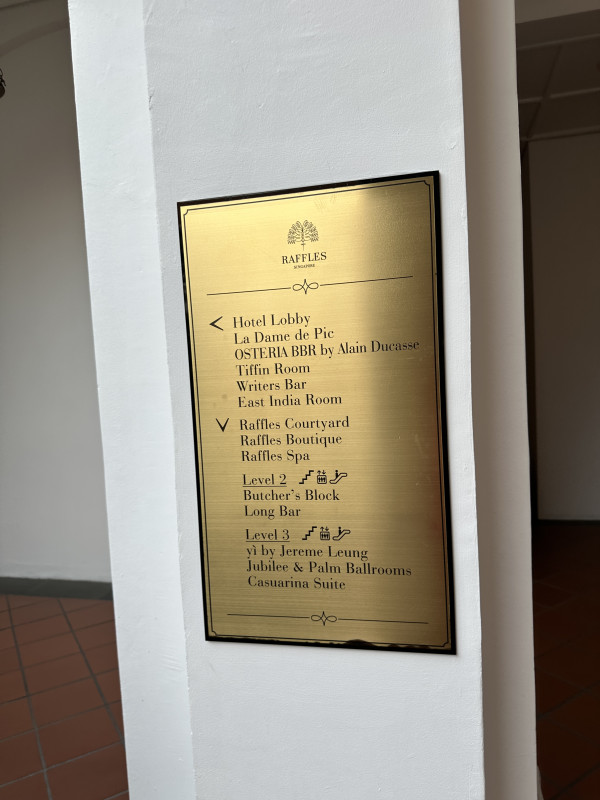 RAFFLES
SINGAPORE
Hotel Lobby
La Dame de Pic
OSTERIA BBR by Alain Ducasse
Tiffin Room
Writers Bar
East India Room
Raffles Courtyard
Raffles Boutique
Raffles Spa
Level 2
Butcher's Block
Long Bar
Level 3
yì by Jereme Leung
Jubilee & Palm Ballrooms
Casuarina Suite